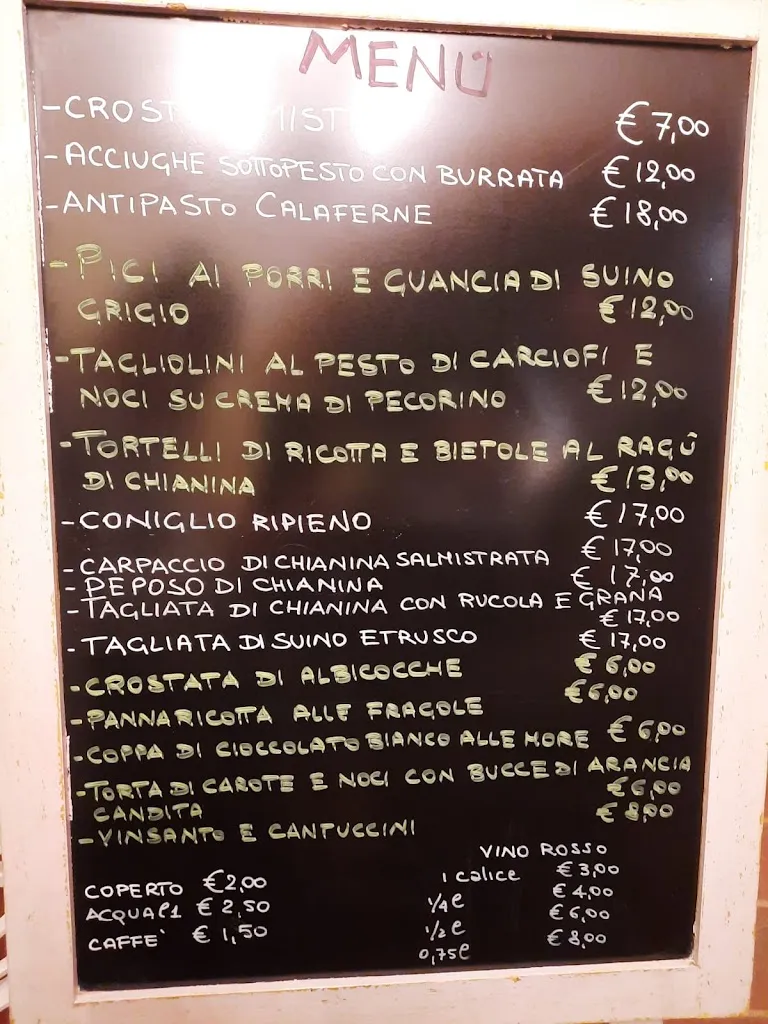 MENÙ
-CROST MIST € 7,00
-ACCIUGHE SOTTOPESTO CON BURRATA € 12,00
-ANTIPASTO CALAFERNE € 18,00
-PICI AI PORRI E GUANCIA DI SUINO
GRIGIO € 12,00
-TAGLIOLINI AL PESTO DI CARCIOFI E
NOCI SU CREMA DI PECORINO € 12,00
-TORTELLI DI RICOTTA E BIETOLE AL RAGÙ
DI CHIANINA € 13,00
-CONIGLIO RIPIENO € 17,00
-CARPACCIO DI CHIANINA SALMISTRATA € 17,00
-PEPOSO DI CHIANINA € 17,00
-TAGLIATA DI CHIANINA CON RUCOLA E GRANA
€ 17,00
-TAGLIATA DI SUINO ETRUSCO € 17,00
-CROSTATA DI ALBICOCCHE € 6,00
-PANNA RICOTTA ALLE FRAGOLE € 6,00
-COPPA DI CIOCCOLATO BIANCO ALLE MORE € 6,00
-TORTA DI CAROTE E NOCI CON BUCCE DI ARANCIA
CANDITA € 6,00
-VINSANTO E CANTUCCINI € 8,00
COPERTO € 2,00
ACQUA l1 € 2,50
CAFFE' € 1,50
VINO ROSSO
1 calice € 3,00
1/4 l € 4,00
1/2 l € 6,00
0,75 l € 8,00